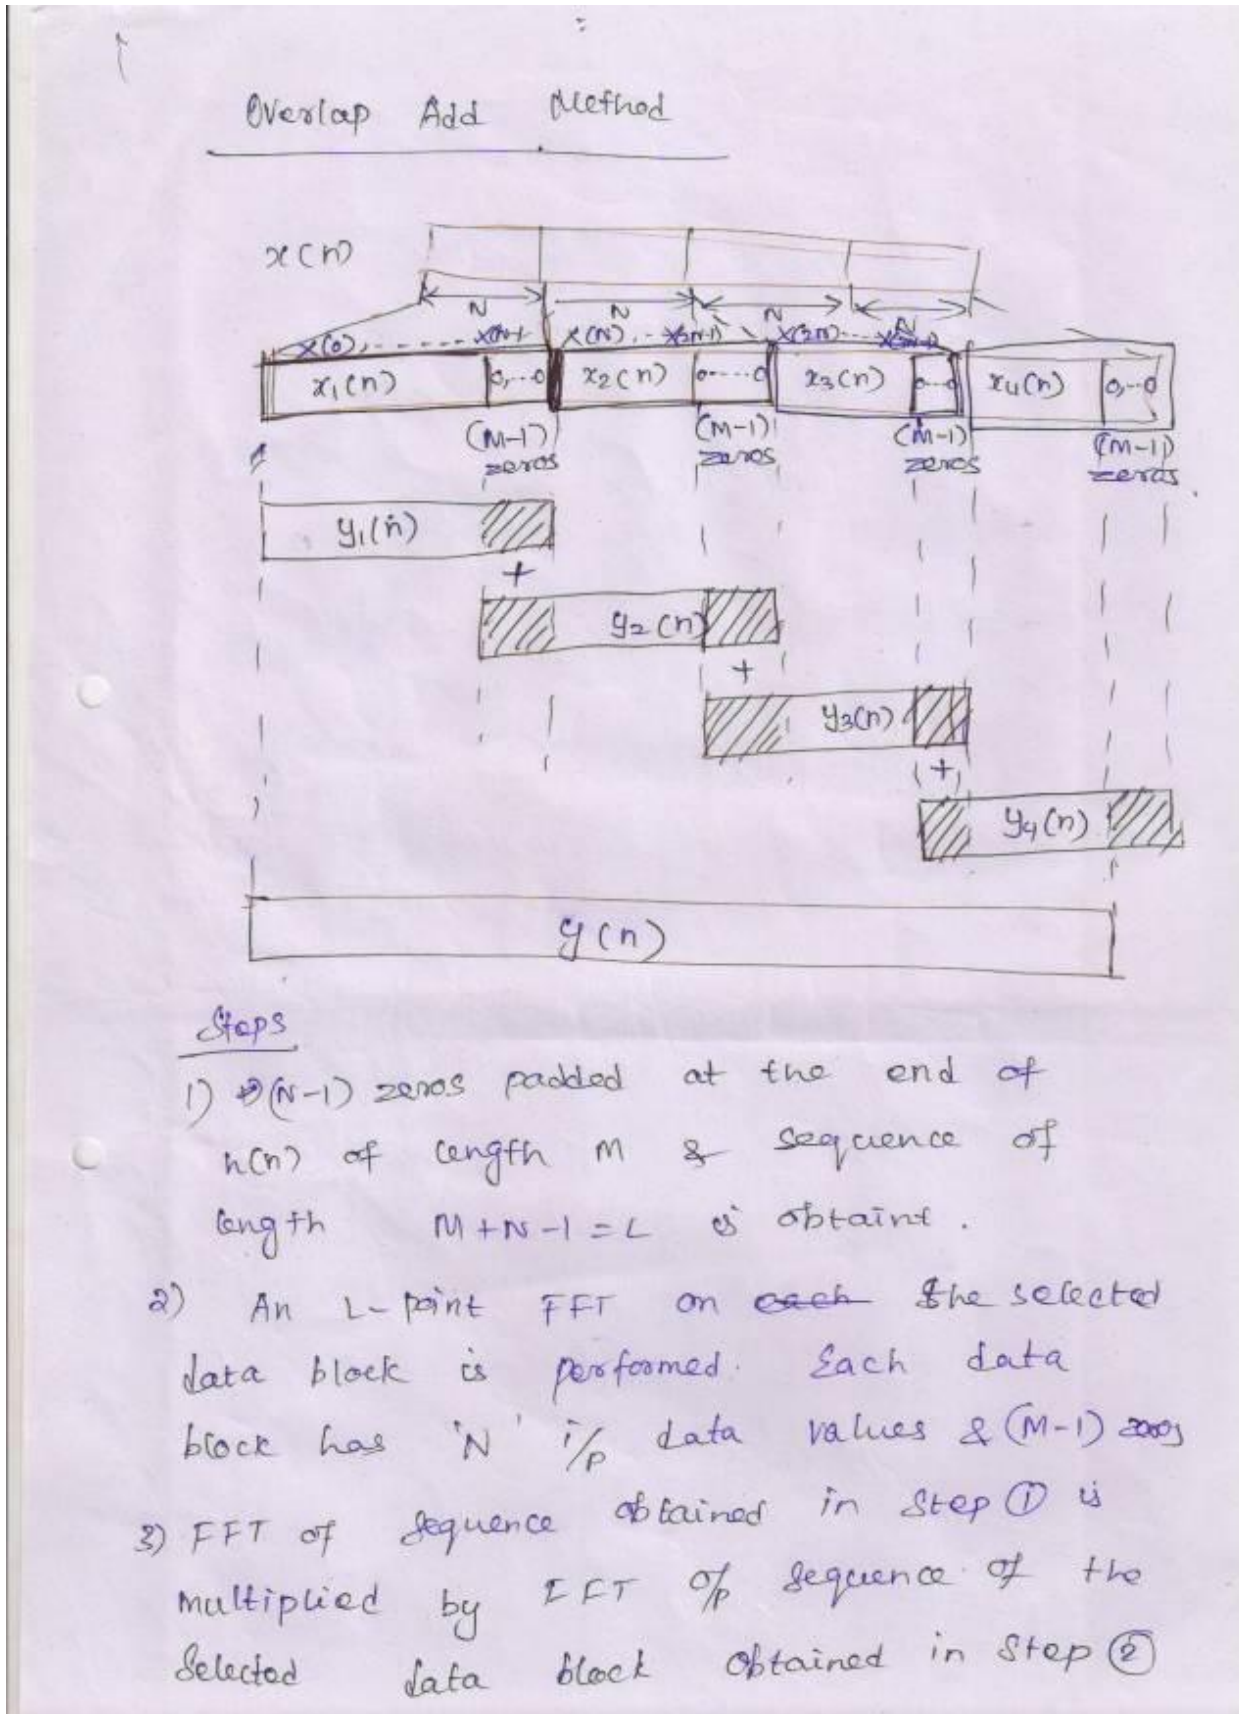 Overlap Add Method
x(n)
N N N N
x(0), ------ x(N-1 x(N), -- x(2N-1) x(2N)----
x1(n) 0,--0 x2(n) 0----0 x3(n) 0--0 x4(n) 0,--0
(M-1) zeros (M-1) zeros (M-1) zeros (M-1) zeros
y1(n)
+
y2(n)
+
y3(n)
+
y4(n)
y(n)
Steps
1) (N-1) zeros padded at the end of
h(n) of length M & sequence of
length M+N-1=L is obtaint.
2) An L-point FFT on each the selected
data block is performed. Each data
block has 'N' i/p data values & (M-1) zeros
3) FFT of sequence obtained in Step ① is
multiplied by FFT o/p sequence of the
selected data block obtained in Step ②